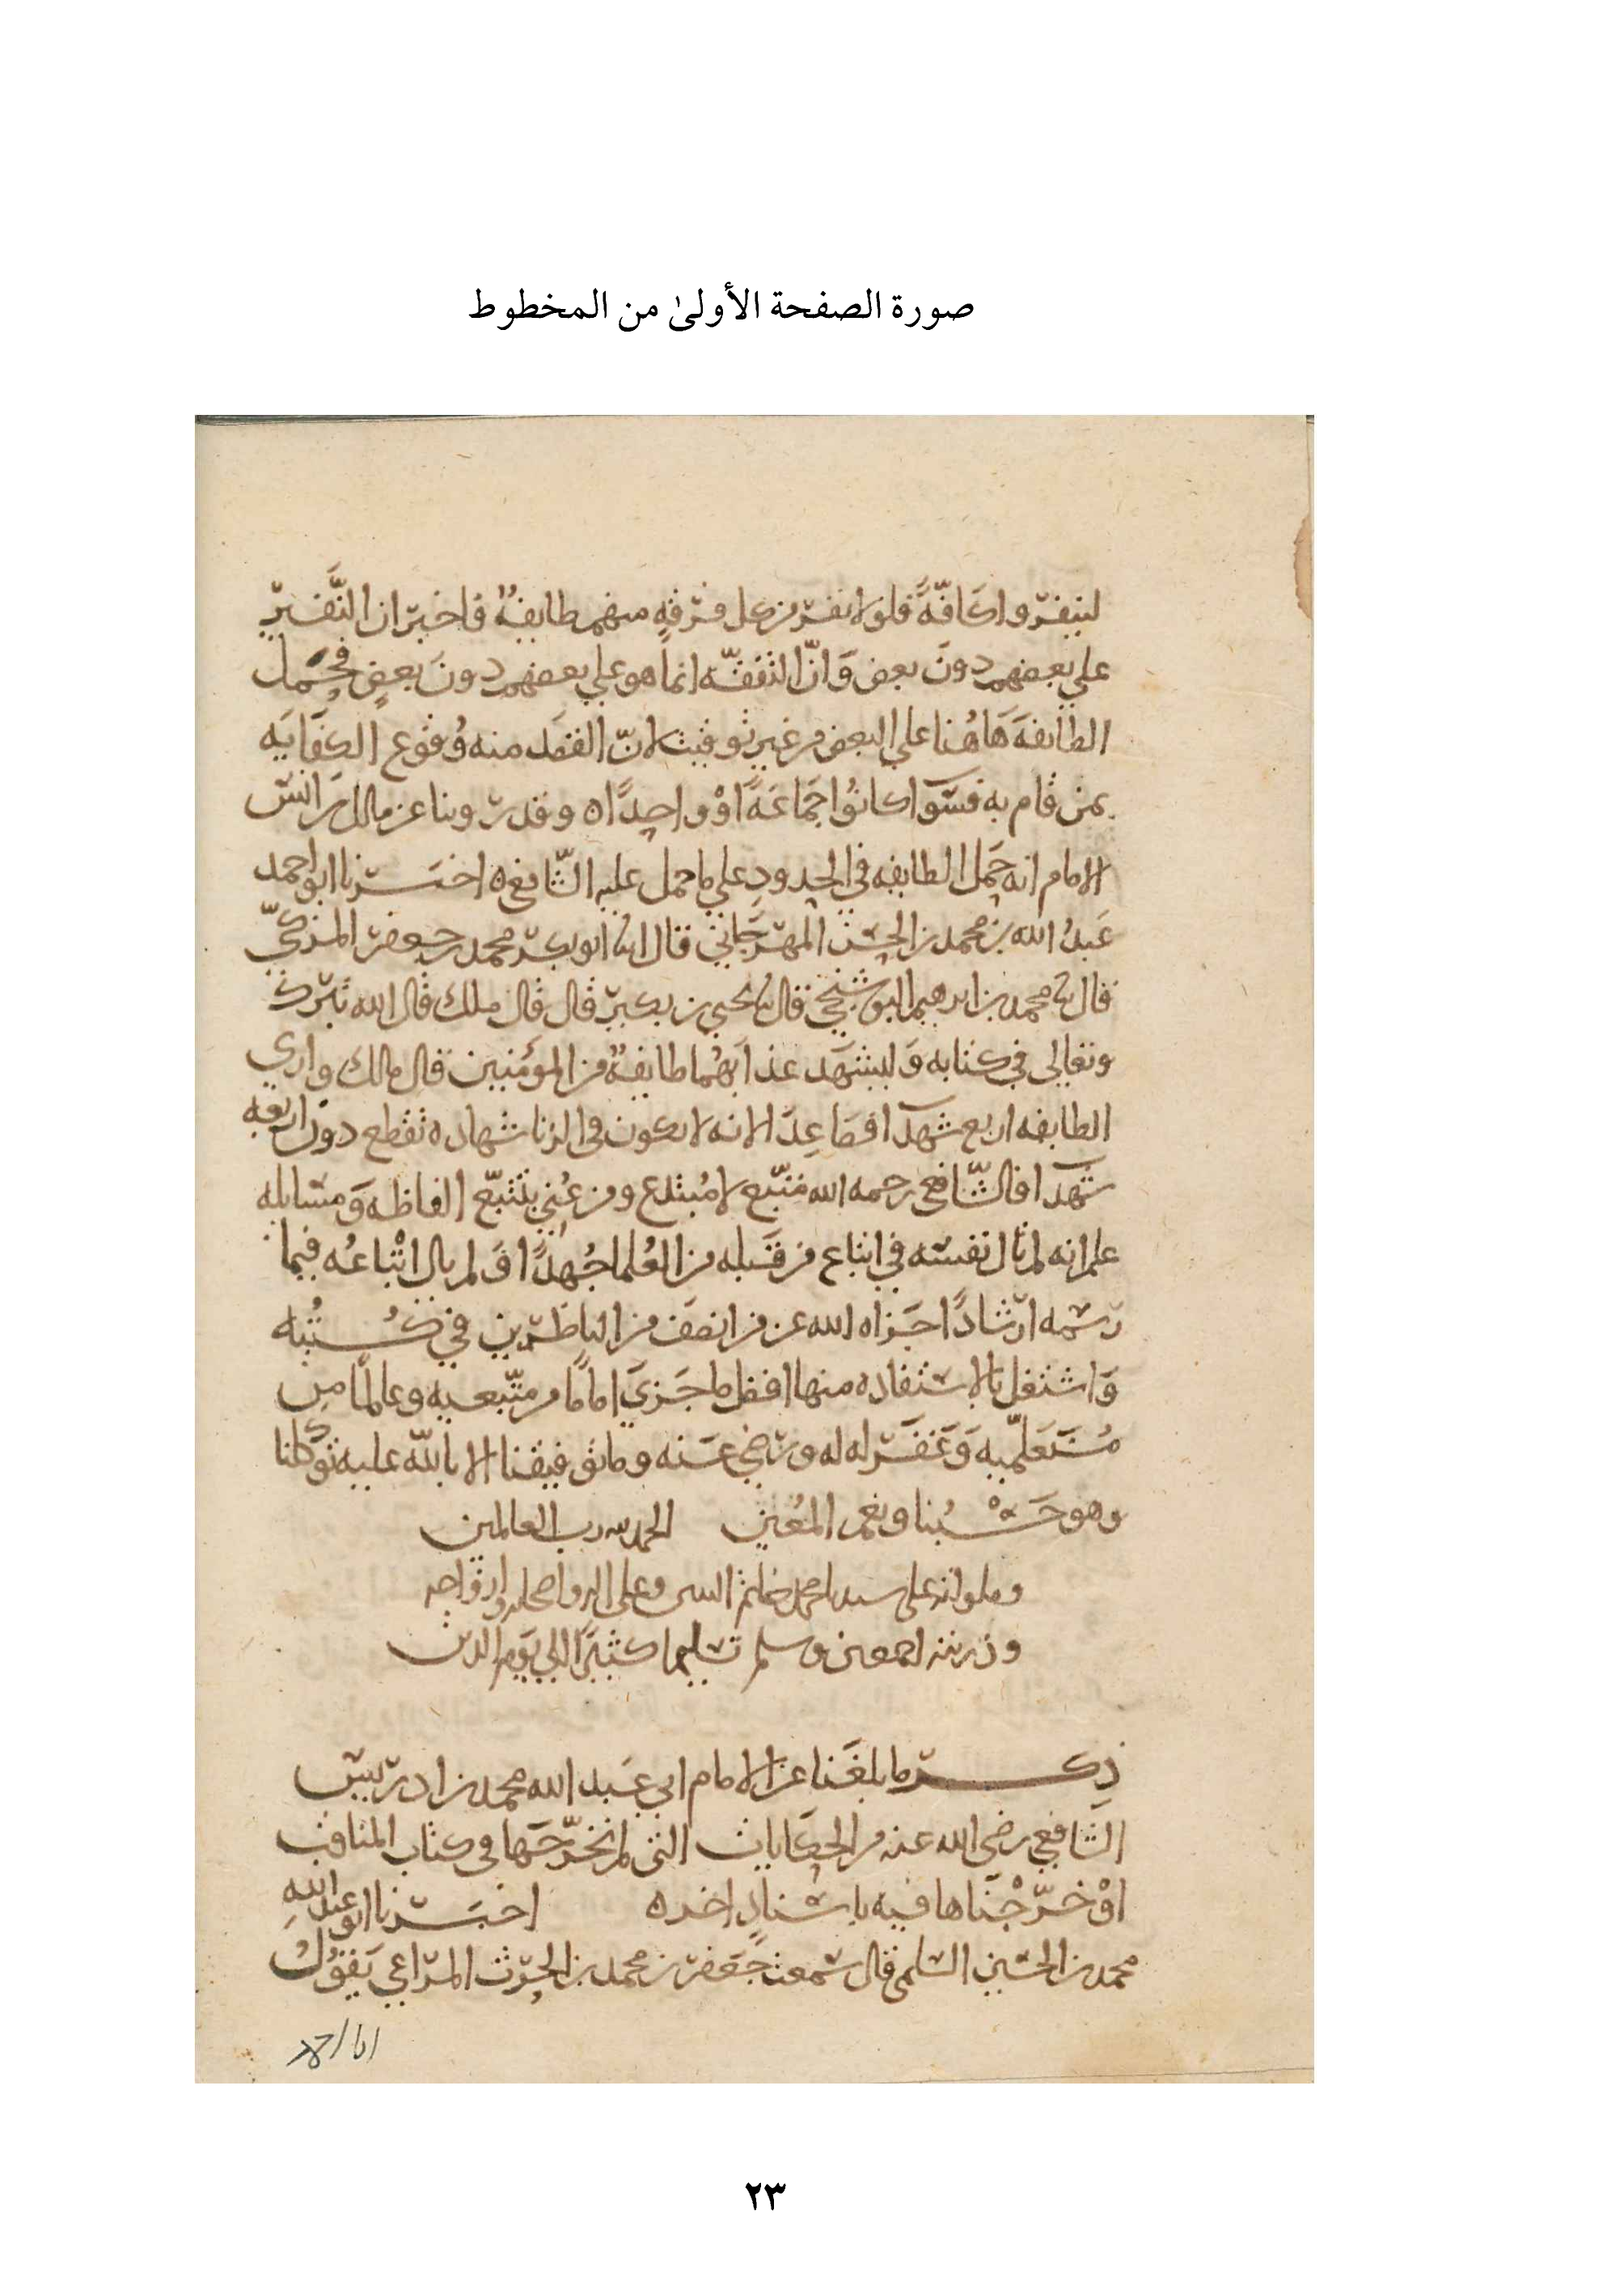 صورة الصفحة الأولىٰ من المخطوط
لينفروا كَافّةً فلولا نفر من كل فرقه منهم طايفةٌ فاخبر ان النَّفير
على بعضهم دونَ بعض وَانّ التفقّه انما هو على بعضهم دونَ بعضٍ فحمل
الطايفةَ هَاهُنا على البعض من غير توقيت لانّ القصَد منه وُقوع الكفَايَه
بمن قام به فسَوا كانوُا جَماعَةً اوْ واحِدًا ه وقد روينا عن مالك بن انس
الامام انه حَمل الطايفه في الحدودِ على ما حمل عليه الشّافعي ه اخبـرنا ابو احمد
عَبدُ الله بن محمد بن الحسَن المهرَجاني قال انا ابو بكر محمد بن جعفر المزكيّ
قال ثا محمد بن ابرهيم البوشَنجي قال ثا يحيى بن بكير قال قال ملك قال الله تبرك
وتعالى في كتابه وَليشهَد عذابَهُما طايفةٌ من المؤمنين قال مالك وارى
الطايفه اربع شهدَا فصَاعِدَا لانه لا يكون في الزنا شهاده تقطع دون اربعه
شهدَا فالشّافعي رحمه الله متّبع لا مُبتدع ومن عُني بتتبّع الفاظه وَمسَايله
علم انه لم يال نفسَه في اتباع من قَبله من العُلما جُهدًا وَلم يال اتْباعُه فيما
رسَمه ارشادًا جَزاه الله عن من انصَف من الناظرين في كُـتُبه
وَاشتغل بالاستفاده منها افضل ما جَزىَ امامًا من متّبعيه وعالمًا من
مُتَعَلّميه وَغَفَر له وله ورضي عَنه وما توفيقنا الا بالله عليه توَكلنا
وهو حَسْـبُنا ونعم المُعين الحمد لله رب العالمين
وصلواته على سيدنا محمد خاتم النبيين وعلى اله واصحابه وازواجه
وذريته اجمعين وسلم تسليما كثيرًا الى يَوم الدين
ذِكـر ما بلغَنا عن الامام ابي عَبد الله محمد بن ادريس
الشافعي رضي الله عنه من الحكَايات التي لم نخرّجَها في كتاب المناقب
اوْ خرّجْنَاها فيه باسْنادٍ اخر ه اخبَـرنا ابو عبد الله
محمد بن الحسَين السلمي قال سمعت جَعفر بن محمد بن الحرث المراغي يَقوُلُ
٢٣